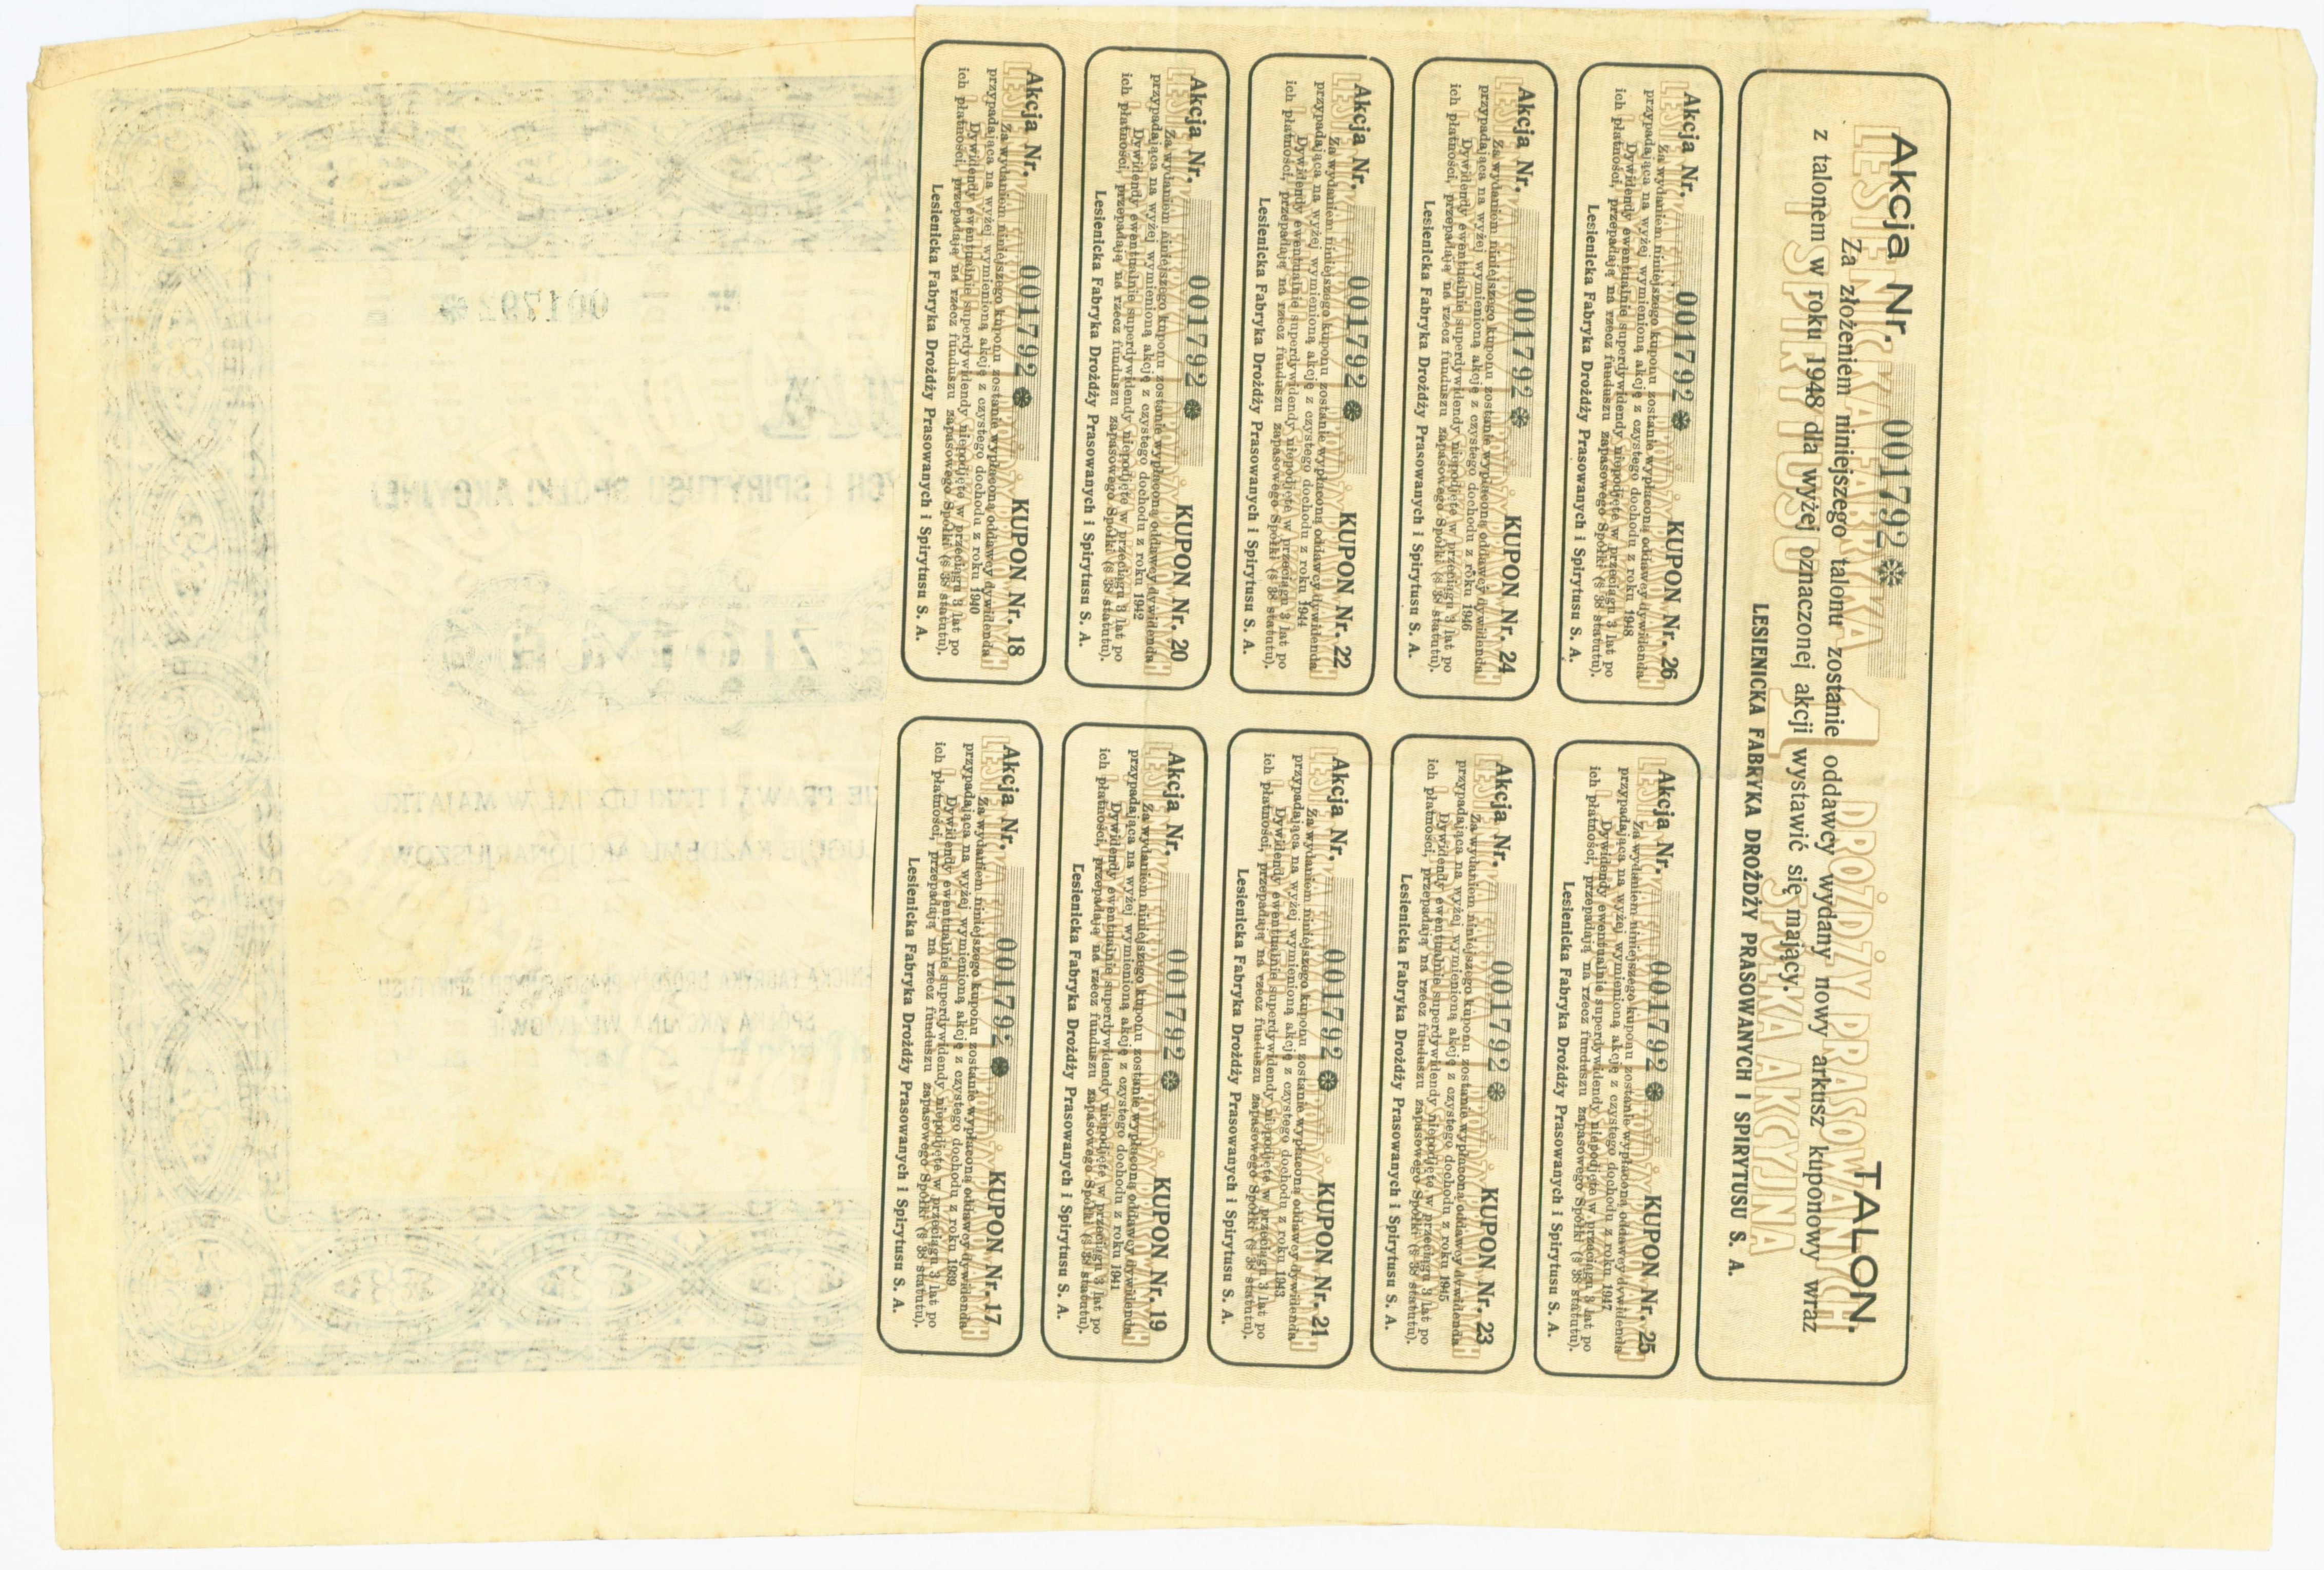 Akcja Nr. 001792 TALON.
Za złożeniem niniejszego talonu zostanie oddawcy wydany nowy arkusz kuponowy wraz
z talonem w roku 1948 dla wyżej oznaczonej akcji wystawić się mający.
LESIENICKA FABRYKA DROŻDŻY PRASOWANYCH I SPIRYTUSU S. A.
LESIENICKA FABRYKA 1 DROŻDŻY PRASOWANYCH
I SPIRYTUSU SPÓŁKA AKCYJNA
Akcja Nr. 001792 KUPON Nr. 26
Za wydaniem niniejszego kuponu zostanie wypłacona oddawcy dywidenda
przypadająca na wyżej wymienioną akcję z czystego dochodu z roku 1948
Dywidendy ewentualnie superdywidendy niepodjęte w przeciągu 3 lat po
ich płatności, przepadają na rzecz funduszu zapasowego Spółki (§ 38 statutu).
Lesienicka Fabryka Drożdży Prasowanych i Spirytusu S. A.
Akcja Nr. 001792 KUPON Nr. 25
Za wydaniem niniejszego kuponu zostanie wypłacona oddawcy dywidenda
przypadająca na wyżej wymienioną akcję z czystego dochodu z roku 1947
Dywidendy ewentualnie superdywidendy niepodjęte w przeciągu 3 lat po
ich płatności, przepadają na rzecz funduszu zapasowego Spółki (§ 38 statutu).
Lesienicka Fabryka Drożdży Prasowanych i Spirytusu S. A.
Akcja Nr. 001792 KUPON Nr. 24
Za wydaniem niniejszego kuponu zostanie wypłacona oddawcy dywidenda
przypadająca na wyżej wymienioną akcję z czystego dochodu z roku 1946
Dywidendy ewentualnie superdywidendy niepodjęte w przeciągu 3 lat po
ich płatności, przepadają na rzecz funduszu zapasowego Spółki (§ 38 statutu).
Lesienicka Fabryka Drożdży Prasowanych i Spirytusu S. A.
Akcja Nr. 001792 KUPON Nr. 23
Za wydaniem niniejszego kuponu zostanie wypłacona oddawcy dywidenda
przypadająca na wyżej wymienioną akcję z czystego dochodu z roku 1945
Dywidendy ewentualnie superdywidendy niepodjęte w przeciągu 3 lat po
ich płatności, przepadają na rzecz funduszu zapasowego Spółki (§ 38 statutu).
Lesienicka Fabryka Drożdży Prasowanych i Spirytusu S. A.
Akcja Nr. 001792 KUPON Nr. 22
Za wydaniem niniejszego kuponu zostanie wypłacona oddawcy dywidenda
przypadająca na wyżej wymienioną akcję z czystego dochodu z roku 1944
Dywidendy ewentualnie superdywidendy niepodjęte w przeciągu 3 lat po
ich płatności, przepadają na rzecz funduszu zapasowego Spółki (§ 38 statutu).
Lesienicka Fabryka Drożdży Prasowanych i Spirytusu S. A.
Akcja Nr. 001792 KUPON Nr. 21
Za wydaniem niniejszego kuponu zostanie wypłacona oddawcy dywidenda
przypadająca na wyżej wymienioną akcję z czystego dochodu z roku 1943
Dywidendy ewentualnie superdywidendy niepodjęte w przeciągu 3 lat po
ich płatności, przepadają na rzecz funduszu zapasowego Spółki (§ 38 statutu).
Lesienicka Fabryka Drożdży Prasowanych i Spirytusu S. A.
Akcja Nr. 001792 KUPON Nr. 20
Za wydaniem niniejszego kuponu zostanie wypłacona oddawcy dywidenda
przypadająca na wyżej wymienioną akcję z czystego dochodu z roku 1942
Dywidendy ewentualnie superdywidendy niepodjęte w przeciągu 3 lat po
ich płatności, przepadają na rzecz funduszu zapasowego Spółki (§ 38 statutu).
Lesienicka Fabryka Drożdży Prasowanych i Spirytusu S. A.
Akcja Nr. 001792 KUPON Nr. 19
Za wydaniem niniejszego kuponu zostanie wypłacona oddawcy dywidenda
przypadająca na wyżej wymienioną akcję z czystego dochodu z roku 1941
Dywidendy ewentualnie superdywidendy niepodjęte w przeciągu 3 lat po
ich płatności, przepadają na rzecz funduszu zapasowego Spółki (§ 38 statutu).
Lesienicka Fabryka Drożdży Prasowanych i Spirytusu S. A.
Akcja Nr. 001792 KUPON Nr. 18
Za wydaniem niniejszego kuponu zostanie wypłacona oddawcy dywidenda
przypadająca na wyżej wymienioną akcję z czystego dochodu z roku 1940
Dywidendy ewentualnie superdywidendy niepodjęte w przeciągu 3 lat po
ich płatności, przepadają na rzecz funduszu zapasowego Spółki (§ 38 statutu).
Lesienicka Fabryka Drożdży Prasowanych i Spirytusu S. A.
Akcja Nr. 001792 KUPON Nr. 17
Za wydaniem niniejszego kuponu zostanie wypłacona oddawcy dywidenda
przypadająca na wyżej wymienioną akcję z czystego dochodu z roku 1939
Dywidendy ewentualnie superdywidendy niepodjęte w przeciągu 3 lat po
ich płatności, przepadają na rzecz funduszu zapasowego Spółki (§ 38 statutu).
Lesienicka Fabryka Drożdży Prasowanych i Spirytusu S. A.